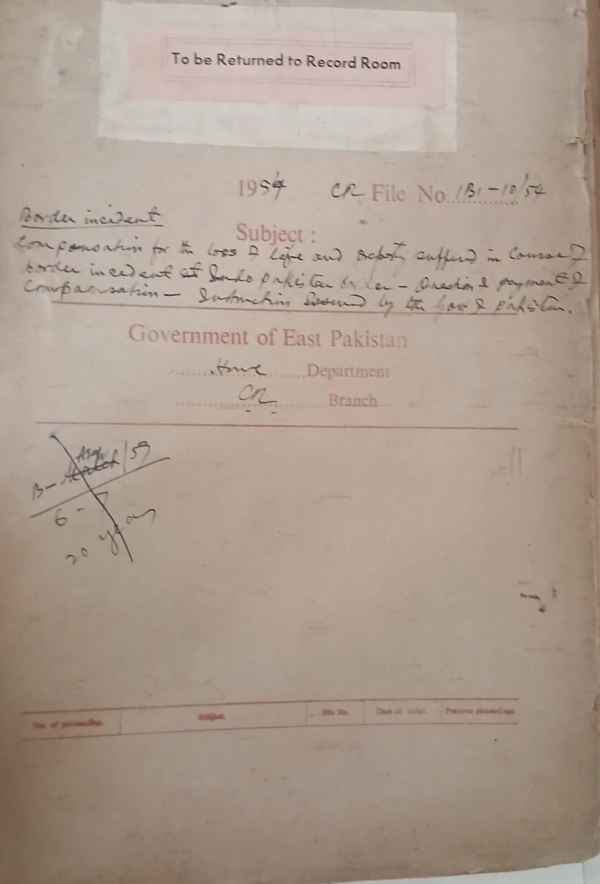 To be Returned to Record Room
1954 CR File No. 1B1-10/54
Border incident
Subject :
Compensation for the loss of life and suffered in course of
border incident at Indo Pakistan border - Question of payment of
Compensation - Instruction issued by the Gov of Pakistan.
Government of East Pakistan
Home Department
CR Branch
B- /59
6-7
20 years
No. of proceeding. Subject. File No. Date of order. Previous proceedings.